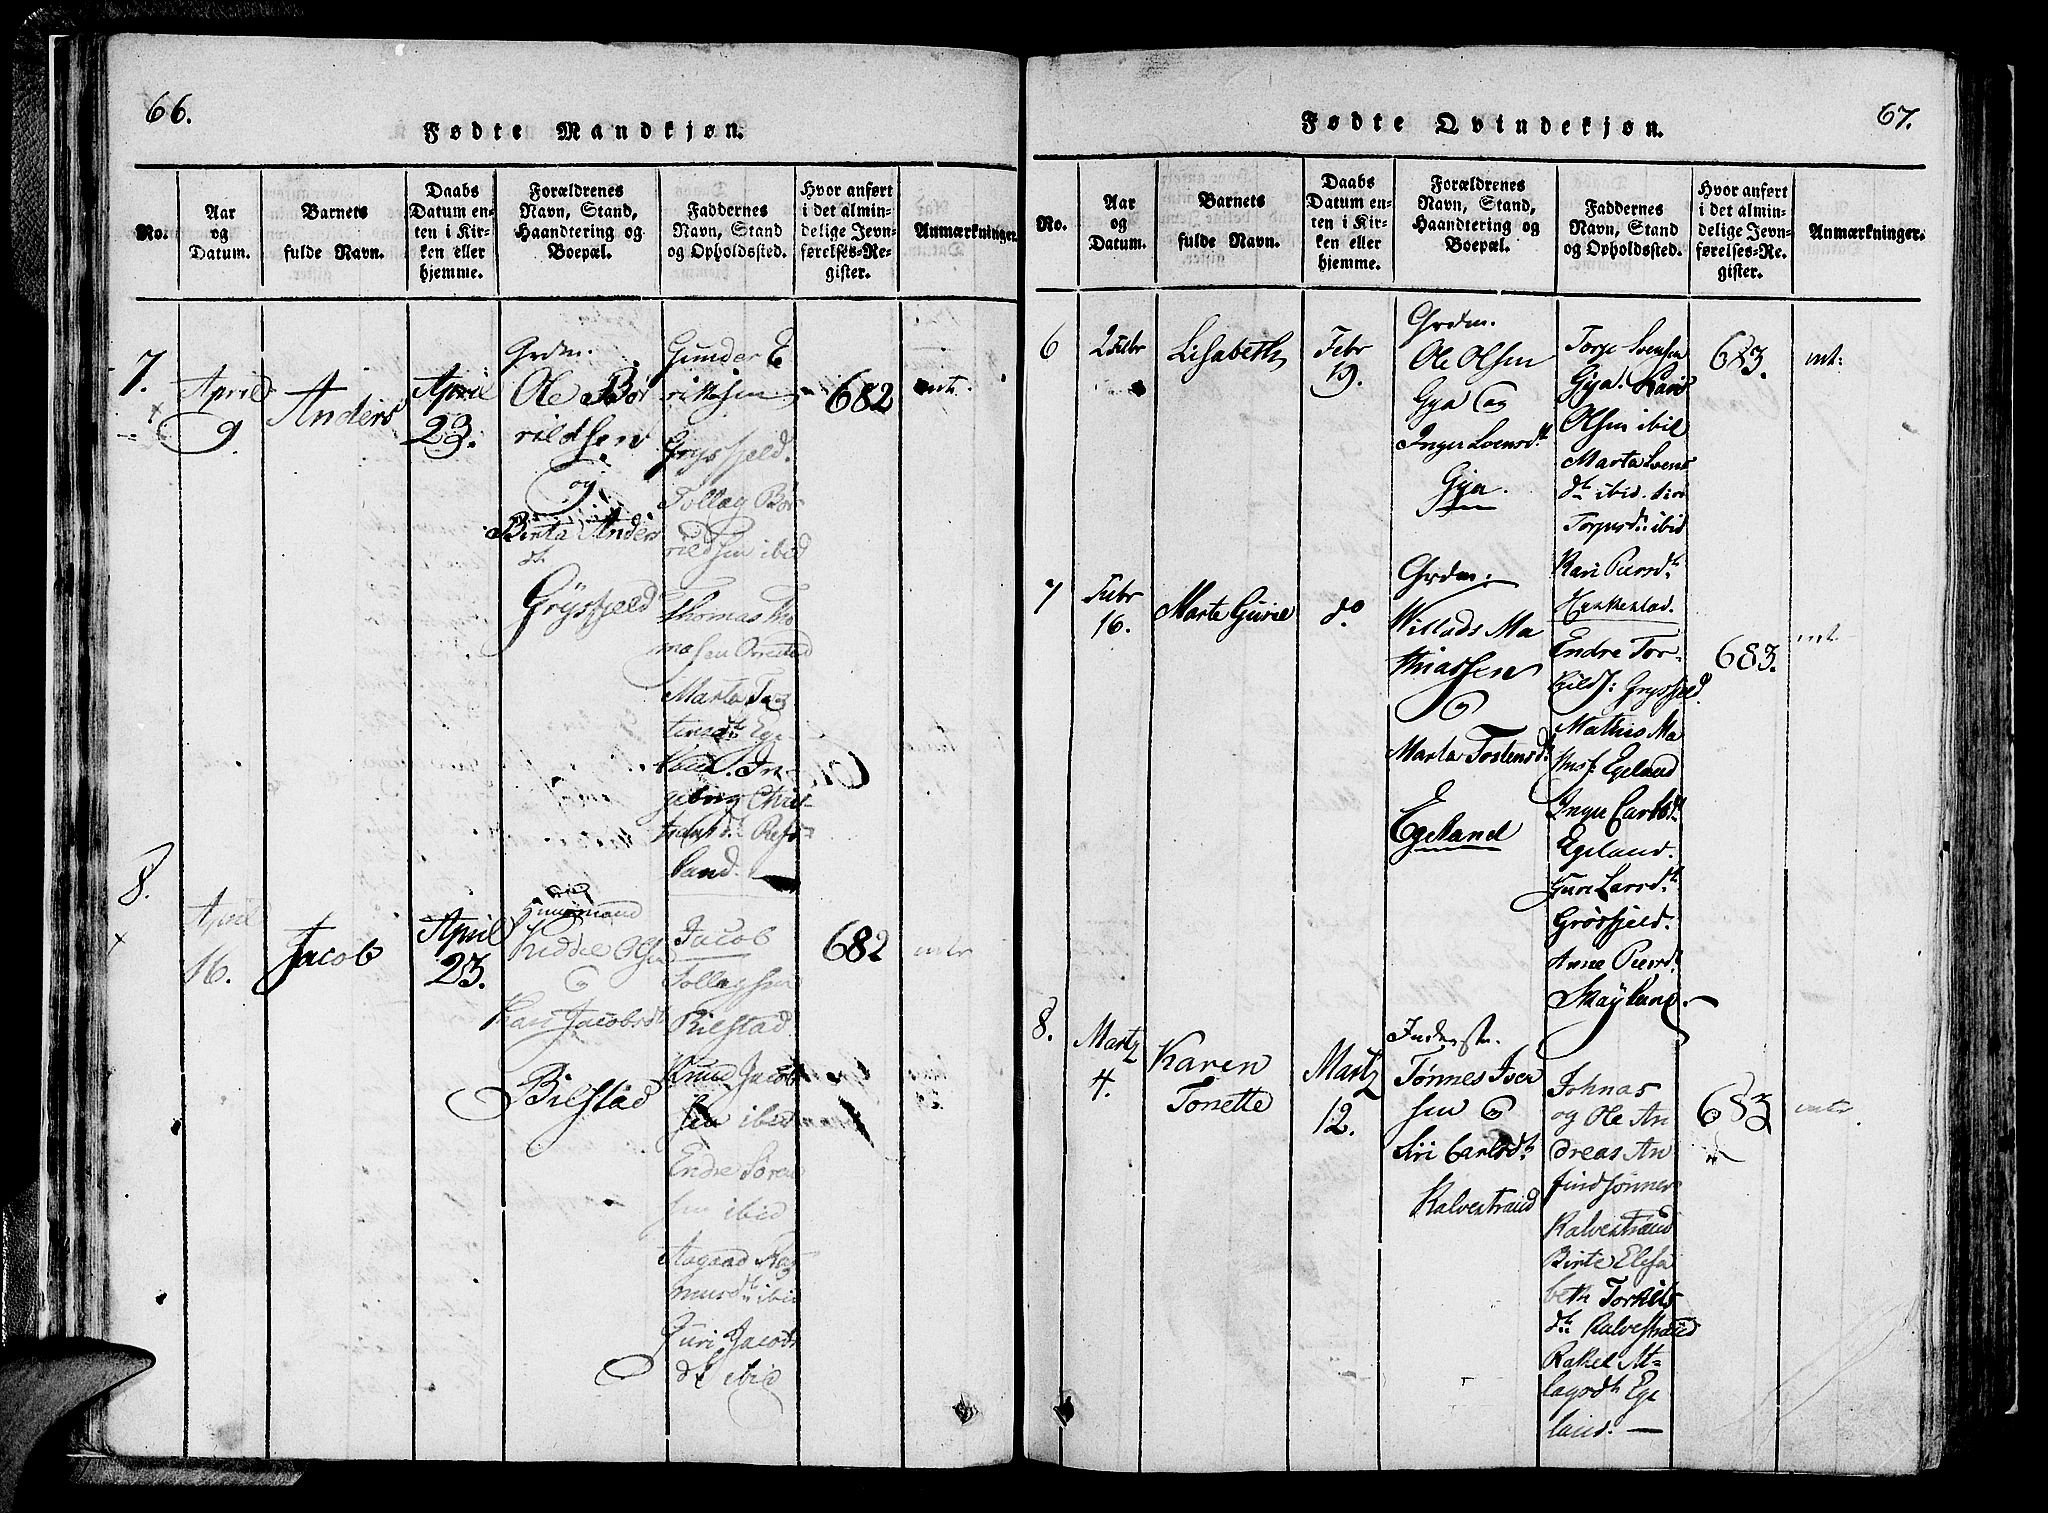 66.
Fødte Mandkjøn.
No.
Aar
og
Datum.
Barnets
fulde Navn.
Daabs
Datum en-
ten i Kir-
ken eller
hjemme.
Forældrenes
Navn, Stand,
Haandtering og
Boepæl.
Faddernes
Navn, Stand
og Opholdssted.
Hvor anført
i det almin-
delige Jevn-
førelses-Re-
gister.
Anmærkninger.
7.
April
9
Anders
April
23.
Grdm.
Ole Bør
rildsen
og
Birta Anders
dr
Grysfjeld
Gunder E
riksen
Grysfjeld.
Tollag Bør
rildsen ibid
Thomas Tho
masen Orrestad
Marta
Ege
land. In
geborg Chris-
tiansd. Refs
land.
682
8.
April
16.
Jacob
April
23.
Huusmand
Kiddel Olsen
Kari Jacobsdr
Bilstad
Jacob
Tollagsen
Bilstad
Knud Jacob
sen ibid
Endre Soren
sen ibid
Aagaad
ibid
Juri Jacobs
dr ibid
682
67.
Fødte Qvindekjøn.
No.
Aar
og
Datum.
Barnets
fulde Navn.
Daabs
Datum en-
ten i Kir-
ken eller
hjemme.
Forældrenes
Navn, Stand,
Haandtering og
Boepæl.
Faddernes
Navn, Stand
og Opholdssted.
Hvor anført
i det almin-
delige Jevn-
førelses-Re-
gister.
Anmærkninger.
6
2 Febr
Lisabeth
Febr
19.
Grdm.
Ole Olsen
Gya og
Inger Svensdr
Gya.
Torje Svensen
Gya.
Olsen ibid
Marta Svens
dr ibid. Siri
ibid
Kari Peersdr
683.
7
Febr
16.
Marta Gurie
do
Grdm.
Willads Ma
thiassen
Marta Tostensdr
Egeland
Endre Tor-
kilds: Grysfjeld
Mathis Ma
Egeland
Inger Carlsdr
Egeland.
Guri Larsdr
Grøsfjeld.
Anne Peersdr
Skøyland.
683.
8.
Martz
4.
Karen
Tonette
Martz
12.
Inderste.
Tønnes Iver
sen
Siri Carlsdr
Kalvestrand
Johnas
og Ole An
dreas An
findsønner
Kalvestrand
Birte Elisa
beth Torkils
dr Kalvestrand
Rakel At-
lagsdr Ege
land.
683